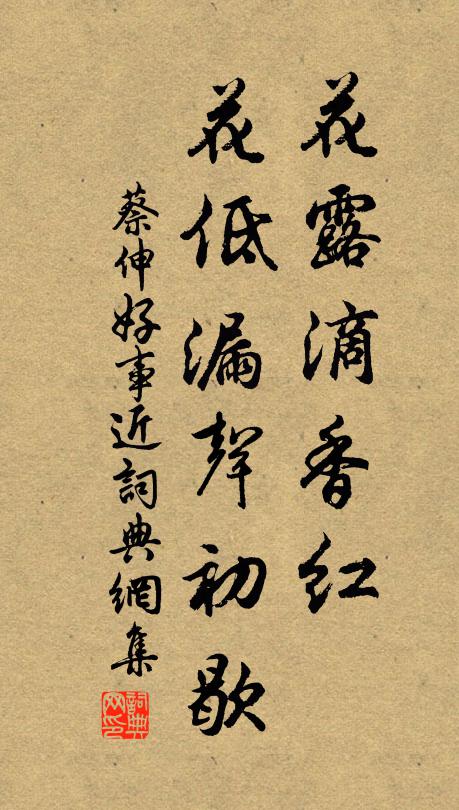 花露滴香紅
花低漏聲初歇
蔡伸好事近詞典網集
詞典网印